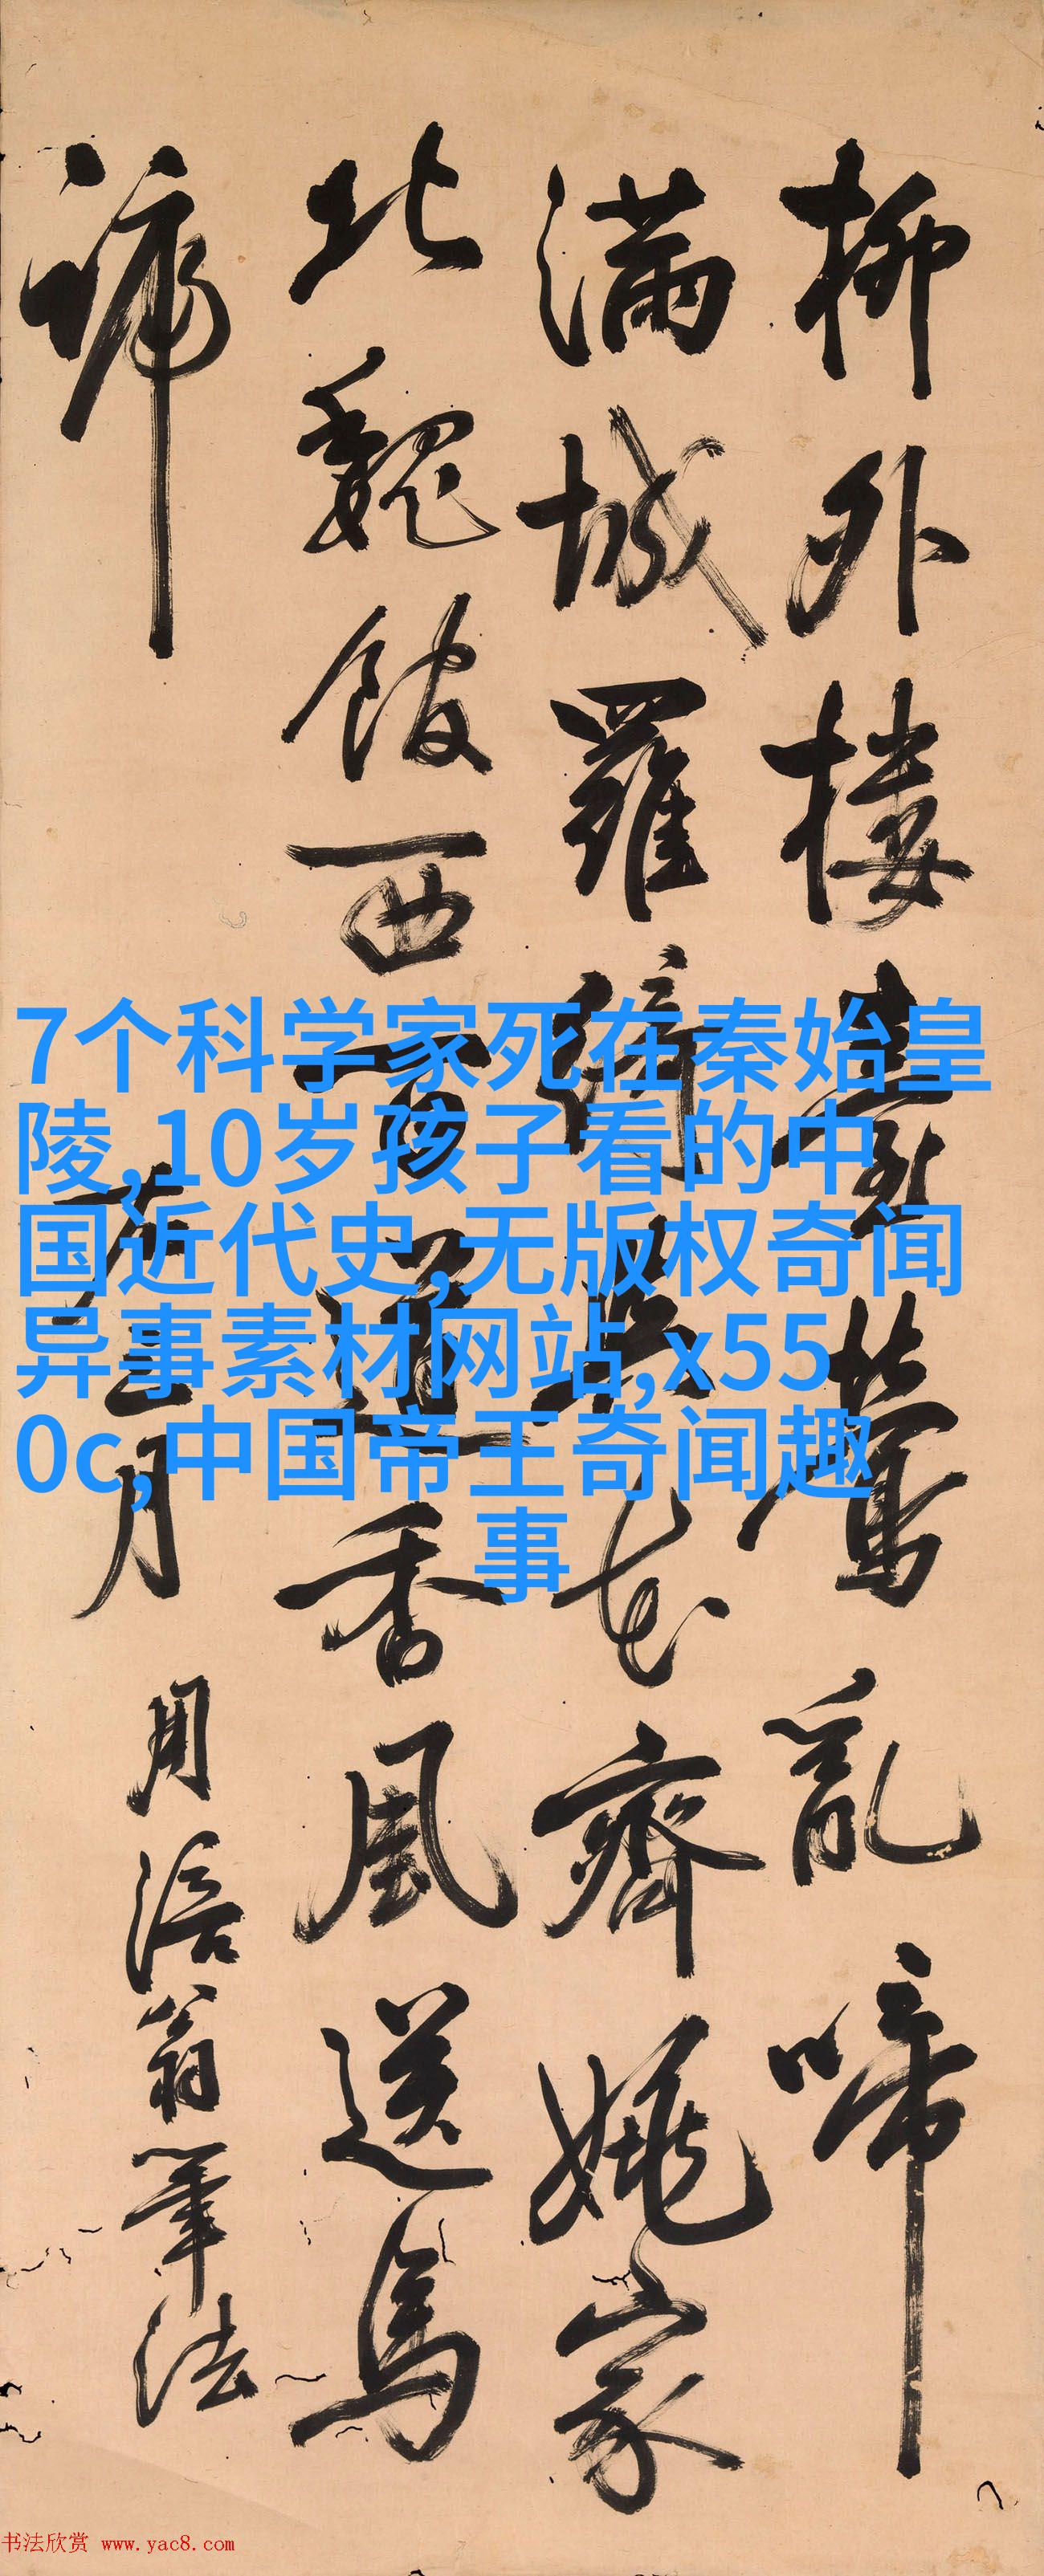 柳外樓臺鶯亂啼
滿城羅綺花齊姚家
北魏西道香風送馬
蹄
右三月
用涪翁筆法
7个科学家死在秦始皇
陵,10岁孩子看的中
国近代史,无版权奇闻
异事素材网站,x55
0c,中国帝王奇闻趣
事
书法欣赏 www.yac8.com